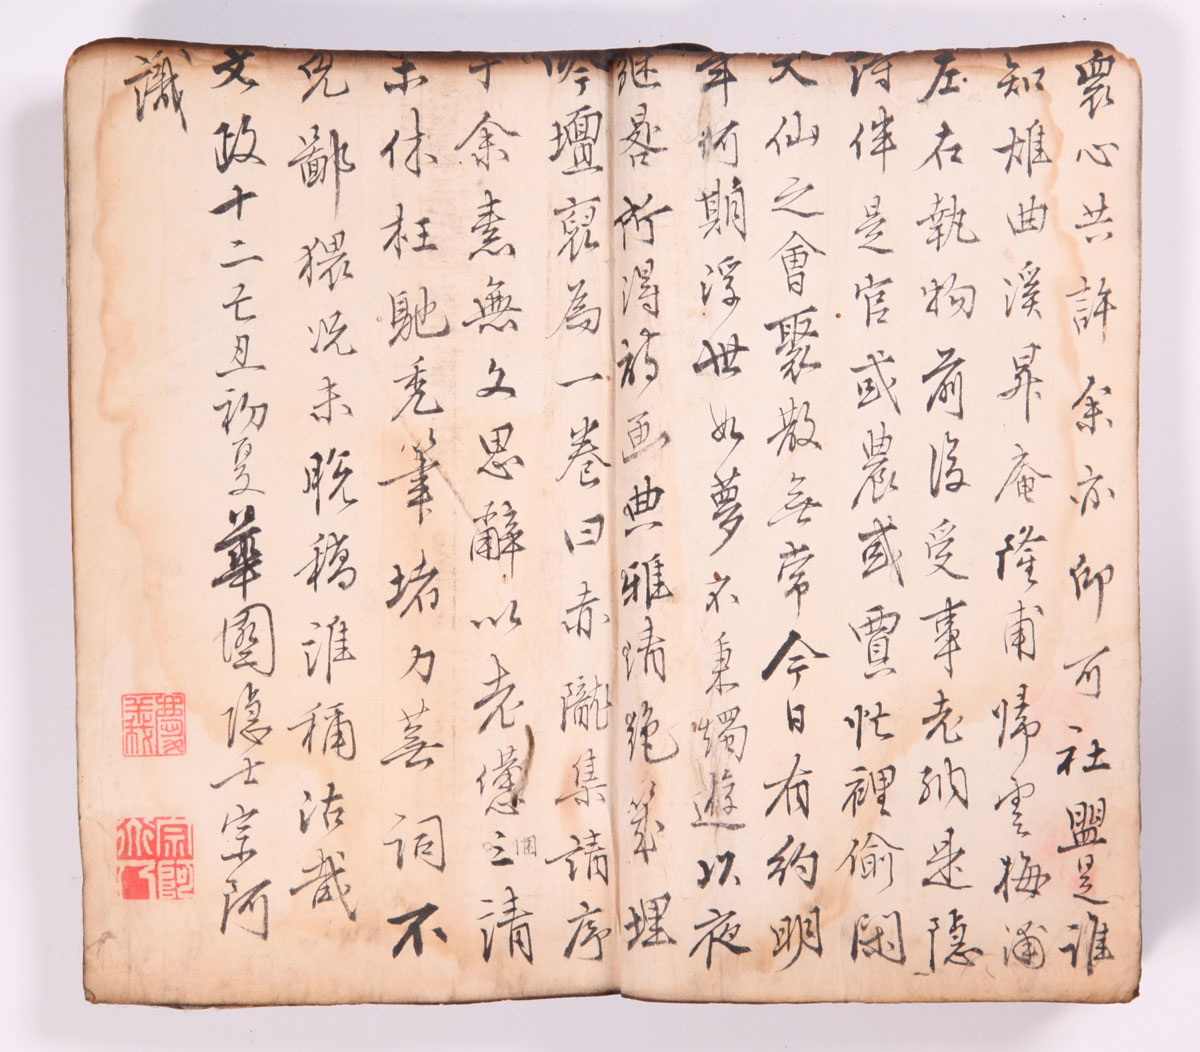 衆心共許余亦仰可社盟是誰
知雄曲溪昇庵隆甫帰雲梅浦
左右執物前後受事老納是隠
詩伴是官或農或賈忙裡偷閑
大仙之會聚散無常今日有約明
年何期浮世如夢不秉燭遊以夜
継晷所得詩画典雅清絶
吟壇裒為一巻曰赤隴集請序
于余素無文思辭以老憊之清
未休枉馳禿筆堵力蕪詞不
免鄙猥况未脱稿誰稱沽哉
文政十二己丑初夏華園隠士宗阿
識